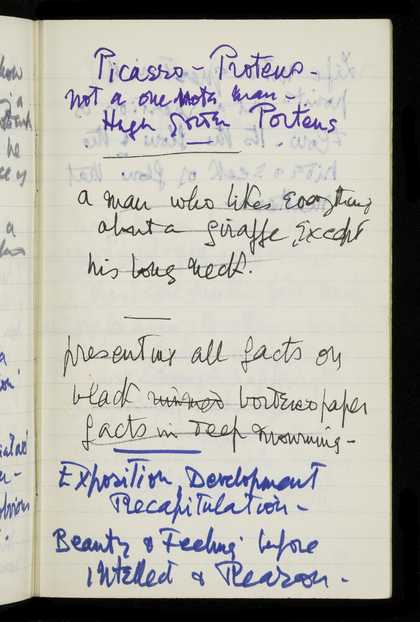 Picasso - Proteus -
not a one note man -
High Portens
a man who likes everything
about a giraffe, Except
his long neck.
presenting all facts on
black bordered paper
facts in deep mourning -
Exposition, Development
Recapitulation -
Beauty & Feeling before
intellect & Reason -